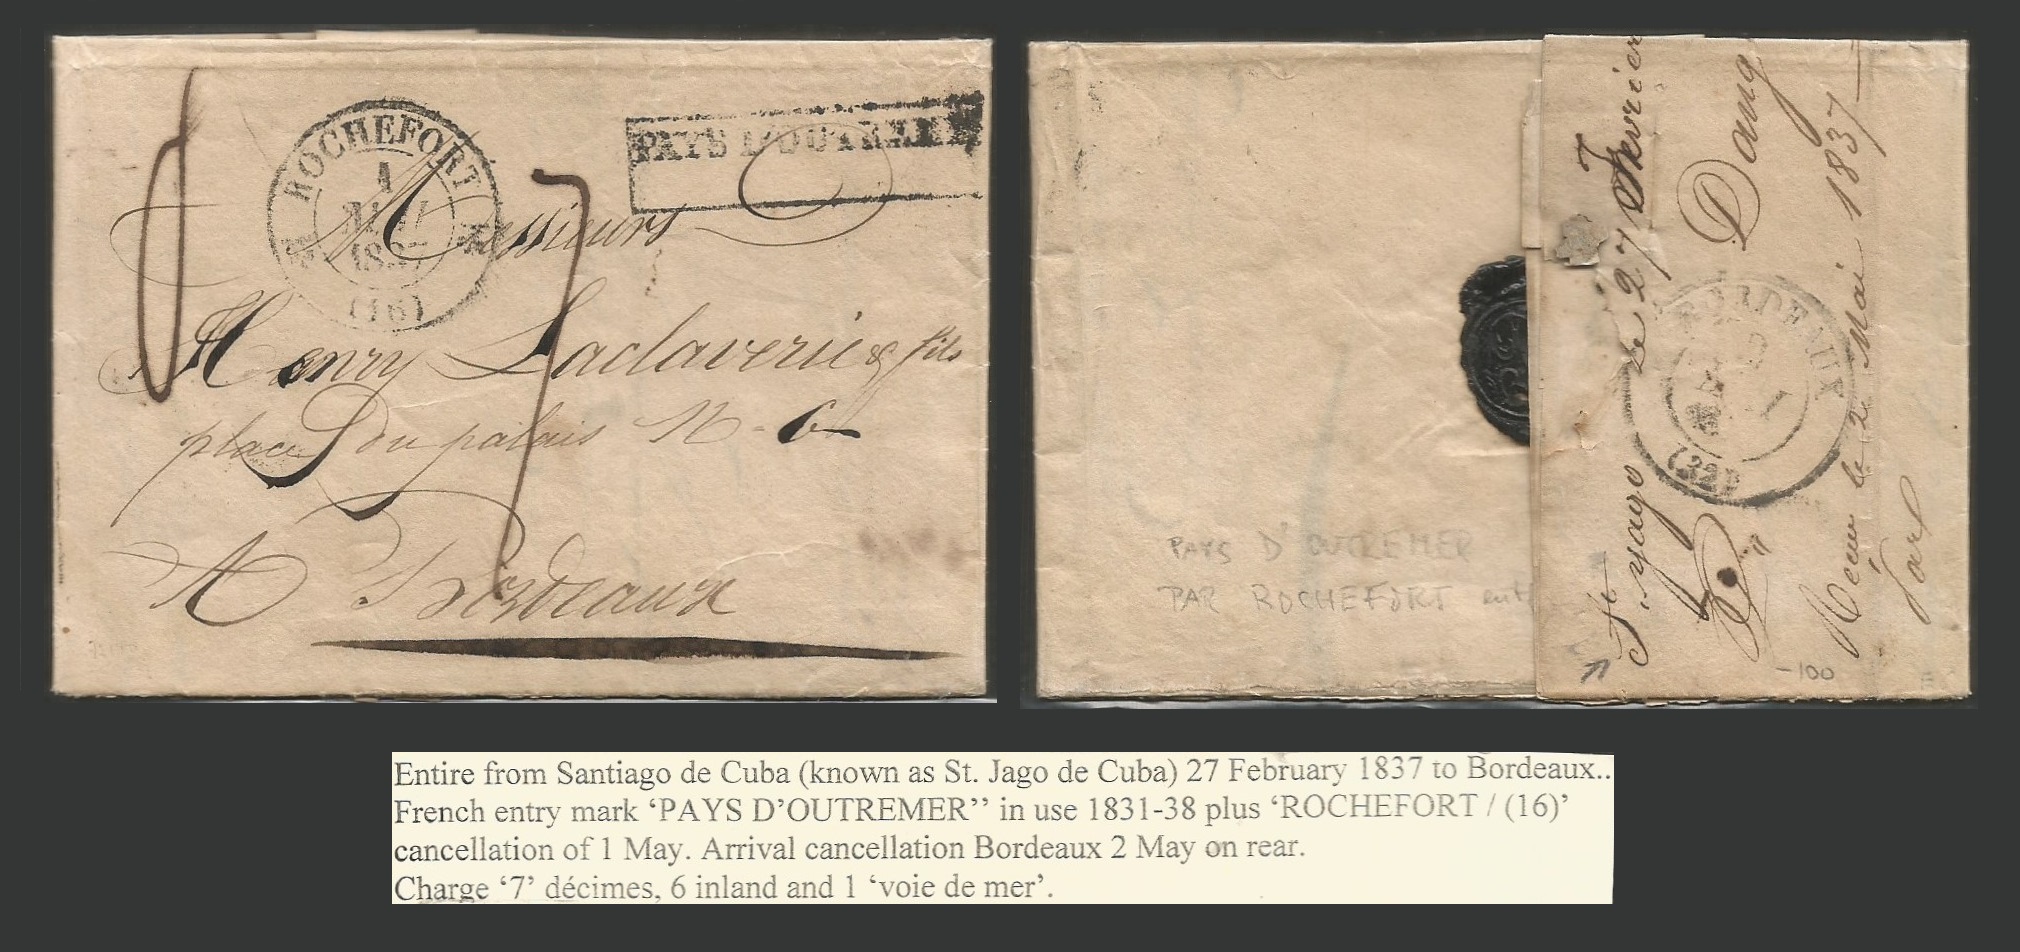 ROCHEFORT
1
MAI
1837
(16)
PAYS D'OUTREMER
7
Messieurs
Henry Laclaverie & fils
place du palais N. 6
A Bordeaux
PAYS D'OUTREMER
PAR ROCHEFORT
St. yago de 27 fevrier
Dany
BORDEAUX
2
MAI
(32)
Recu le 2 Mai 1837
-100
Entire from Santiago de Cuba (known as St. Jago de Cuba) 27 February 1837 to Bordeaux..
French entry mark ‘PAYS D’OUTREMER’’ in use 1831-38 plus ‘ROCHEFORT / (16)’
cancellation of 1 May. Arrival cancellation Bordeaux 2 May on rear.
Charge ‘7’ décimes, 6 inland and 1 ‘voie de mer’.